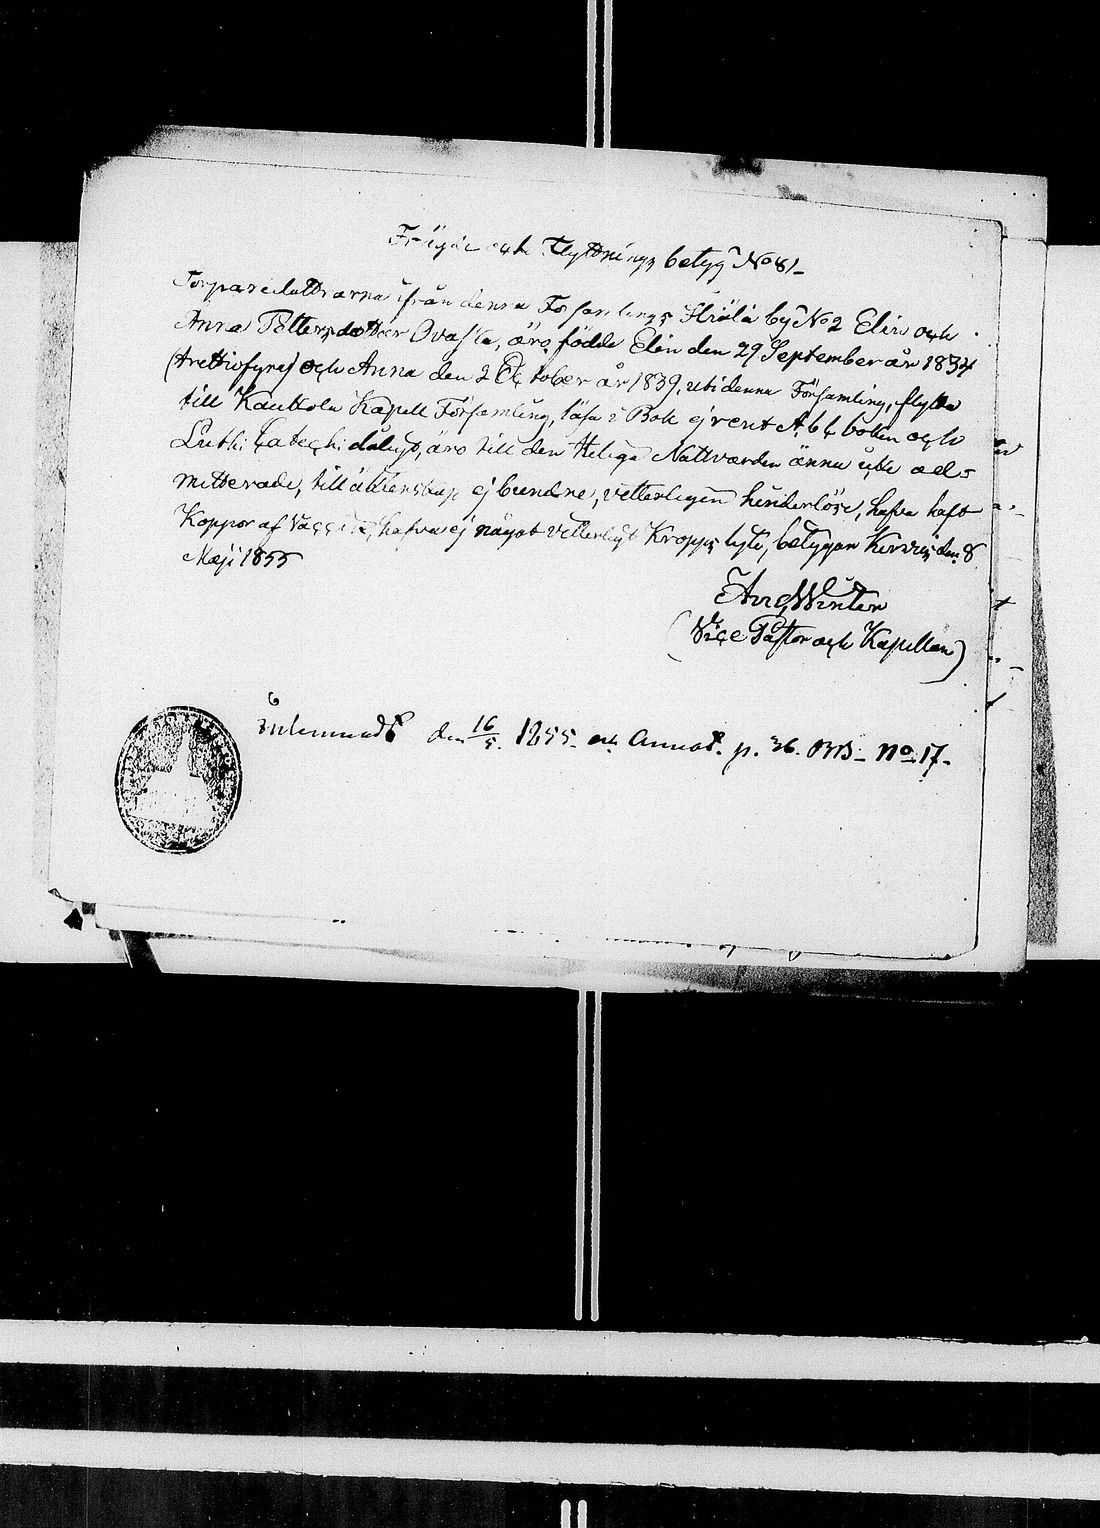 Fräjde och Flyttnings betyg No 81
Torparedöttrarna ifrån denna Församlings by No 2 Elin och
Anna Pettersdötter Ovaska, äro födde Elin den 29 September år 1834
(trettiofyra) och Anna den 2 October år 1839, uti denna Församling, flytta
till Kauttola Kapell Församling, läsa i Bok ej rent Abc boken och
Luth: Catech: dåligt, äro till den Heliga Nattvarden ännu icke ad-
mitterade, till äktenskap ej bundne, vetterligen hinderlöse, hafva haft
Koppor af Vaccine, hafva ej något vetterligt Kropps lyte, betygar den 8
Maji 1855
Winter
(Vice Pastor och Kapellan)
Inlemnadt den 16/5 1855. och Annot. p. 36. No 17.